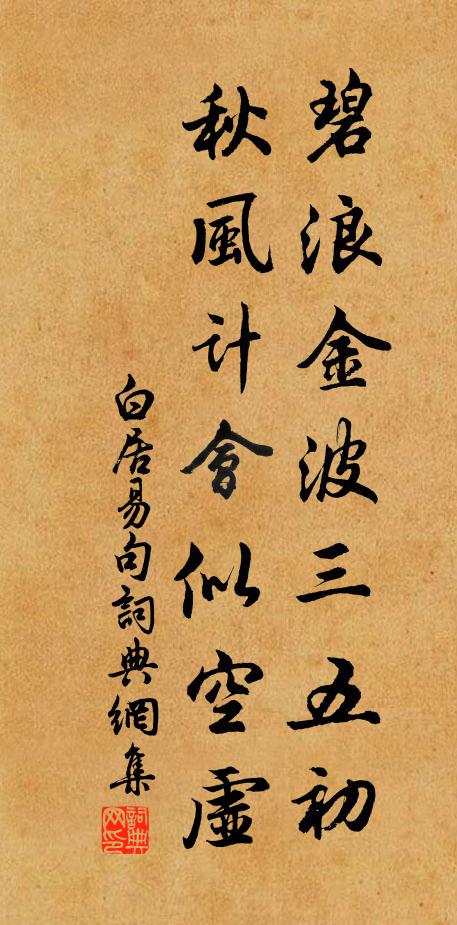 碧浪金波三五初
秋風計會似空虛
白居易句詞典網集
詞典网印